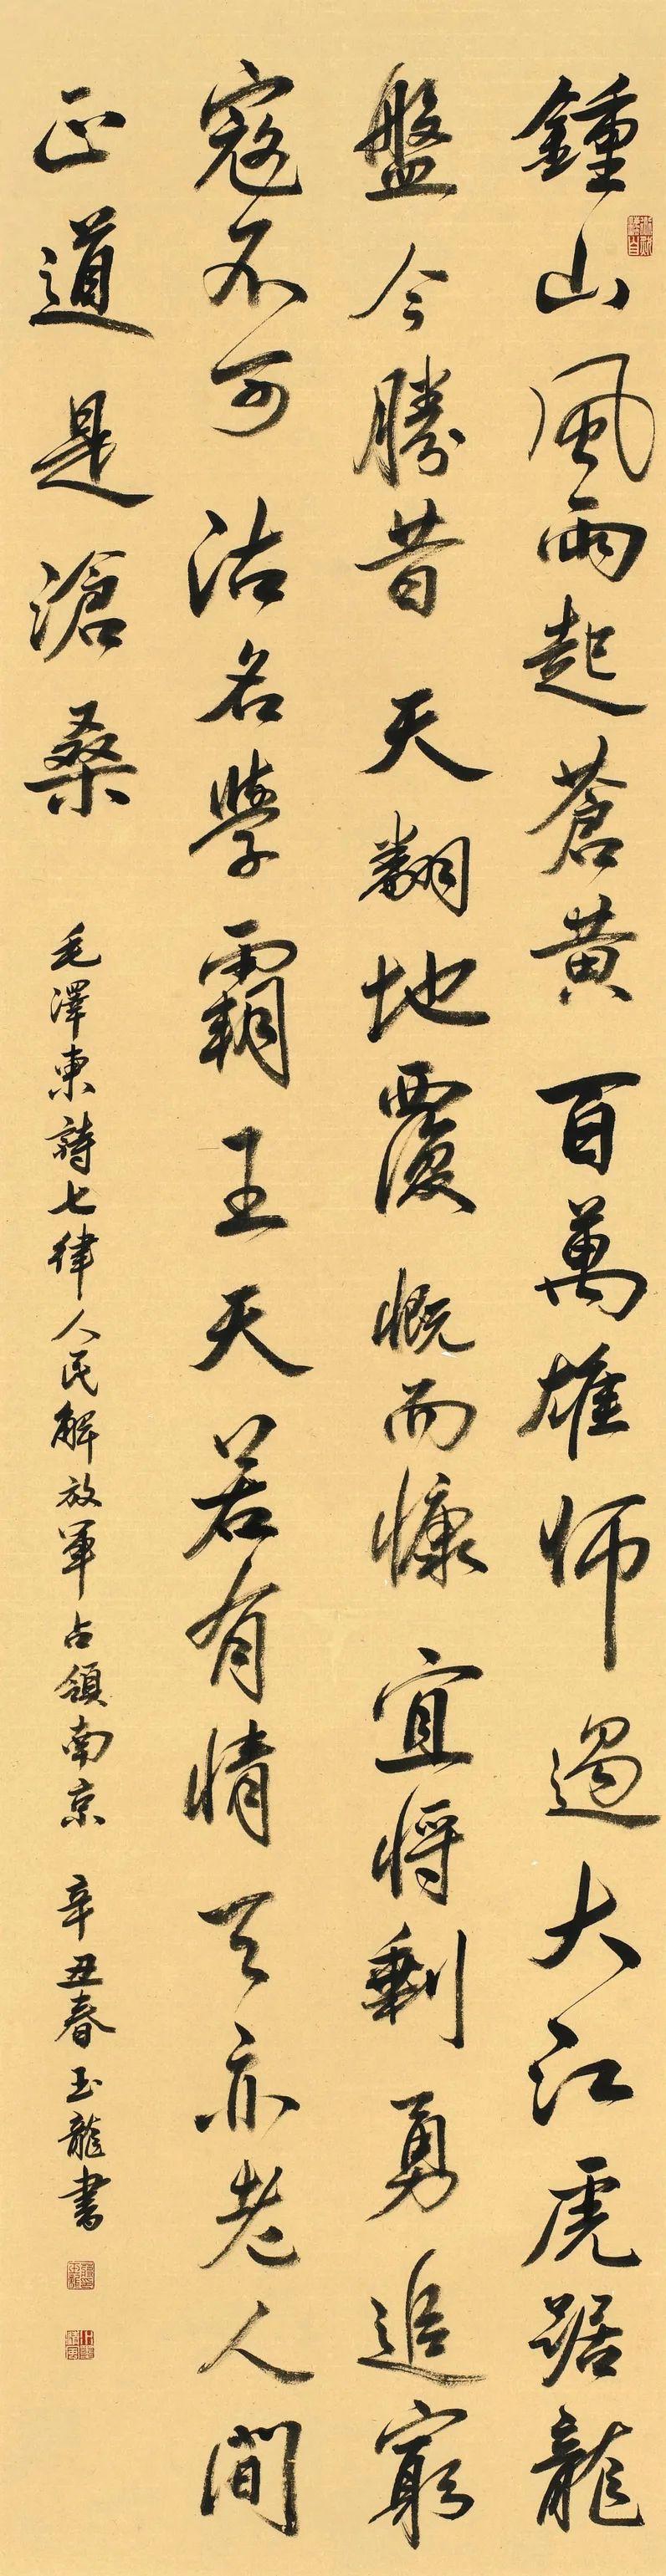 鍾山風雨起蒼黄百萬雄师過大江虎踞龍
盤今勝昔天翻地覆慨而慷宜将剩勇追窮
寇不可沽名學霸王天若有情天亦老人間
正道是滄桑
毛澤東詩七律人民解放軍占領南京 辛丑春玉龍書